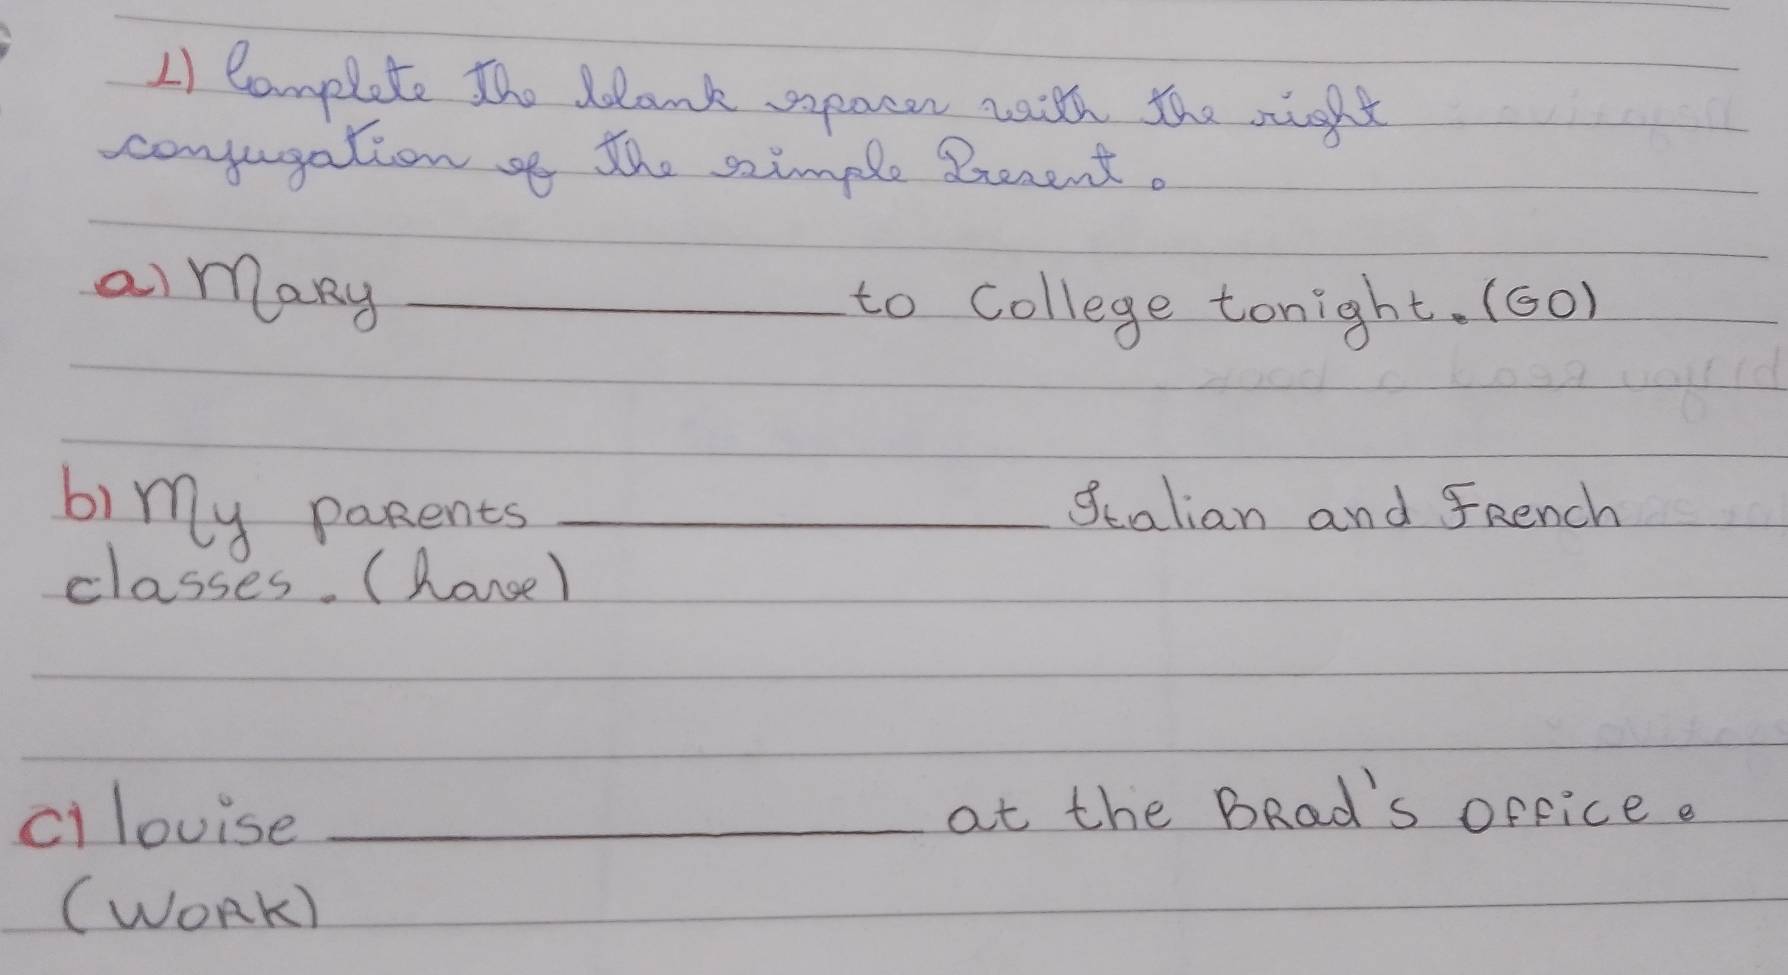 1) Complete the blank spaces with the right
conjugation of the simple Present.
a) Mary ____________ to College tonight. (GO)
b) My parents ____________ Italian and French
classes. (have)
c) louise ____________ at the Brad's office.
(WORK)